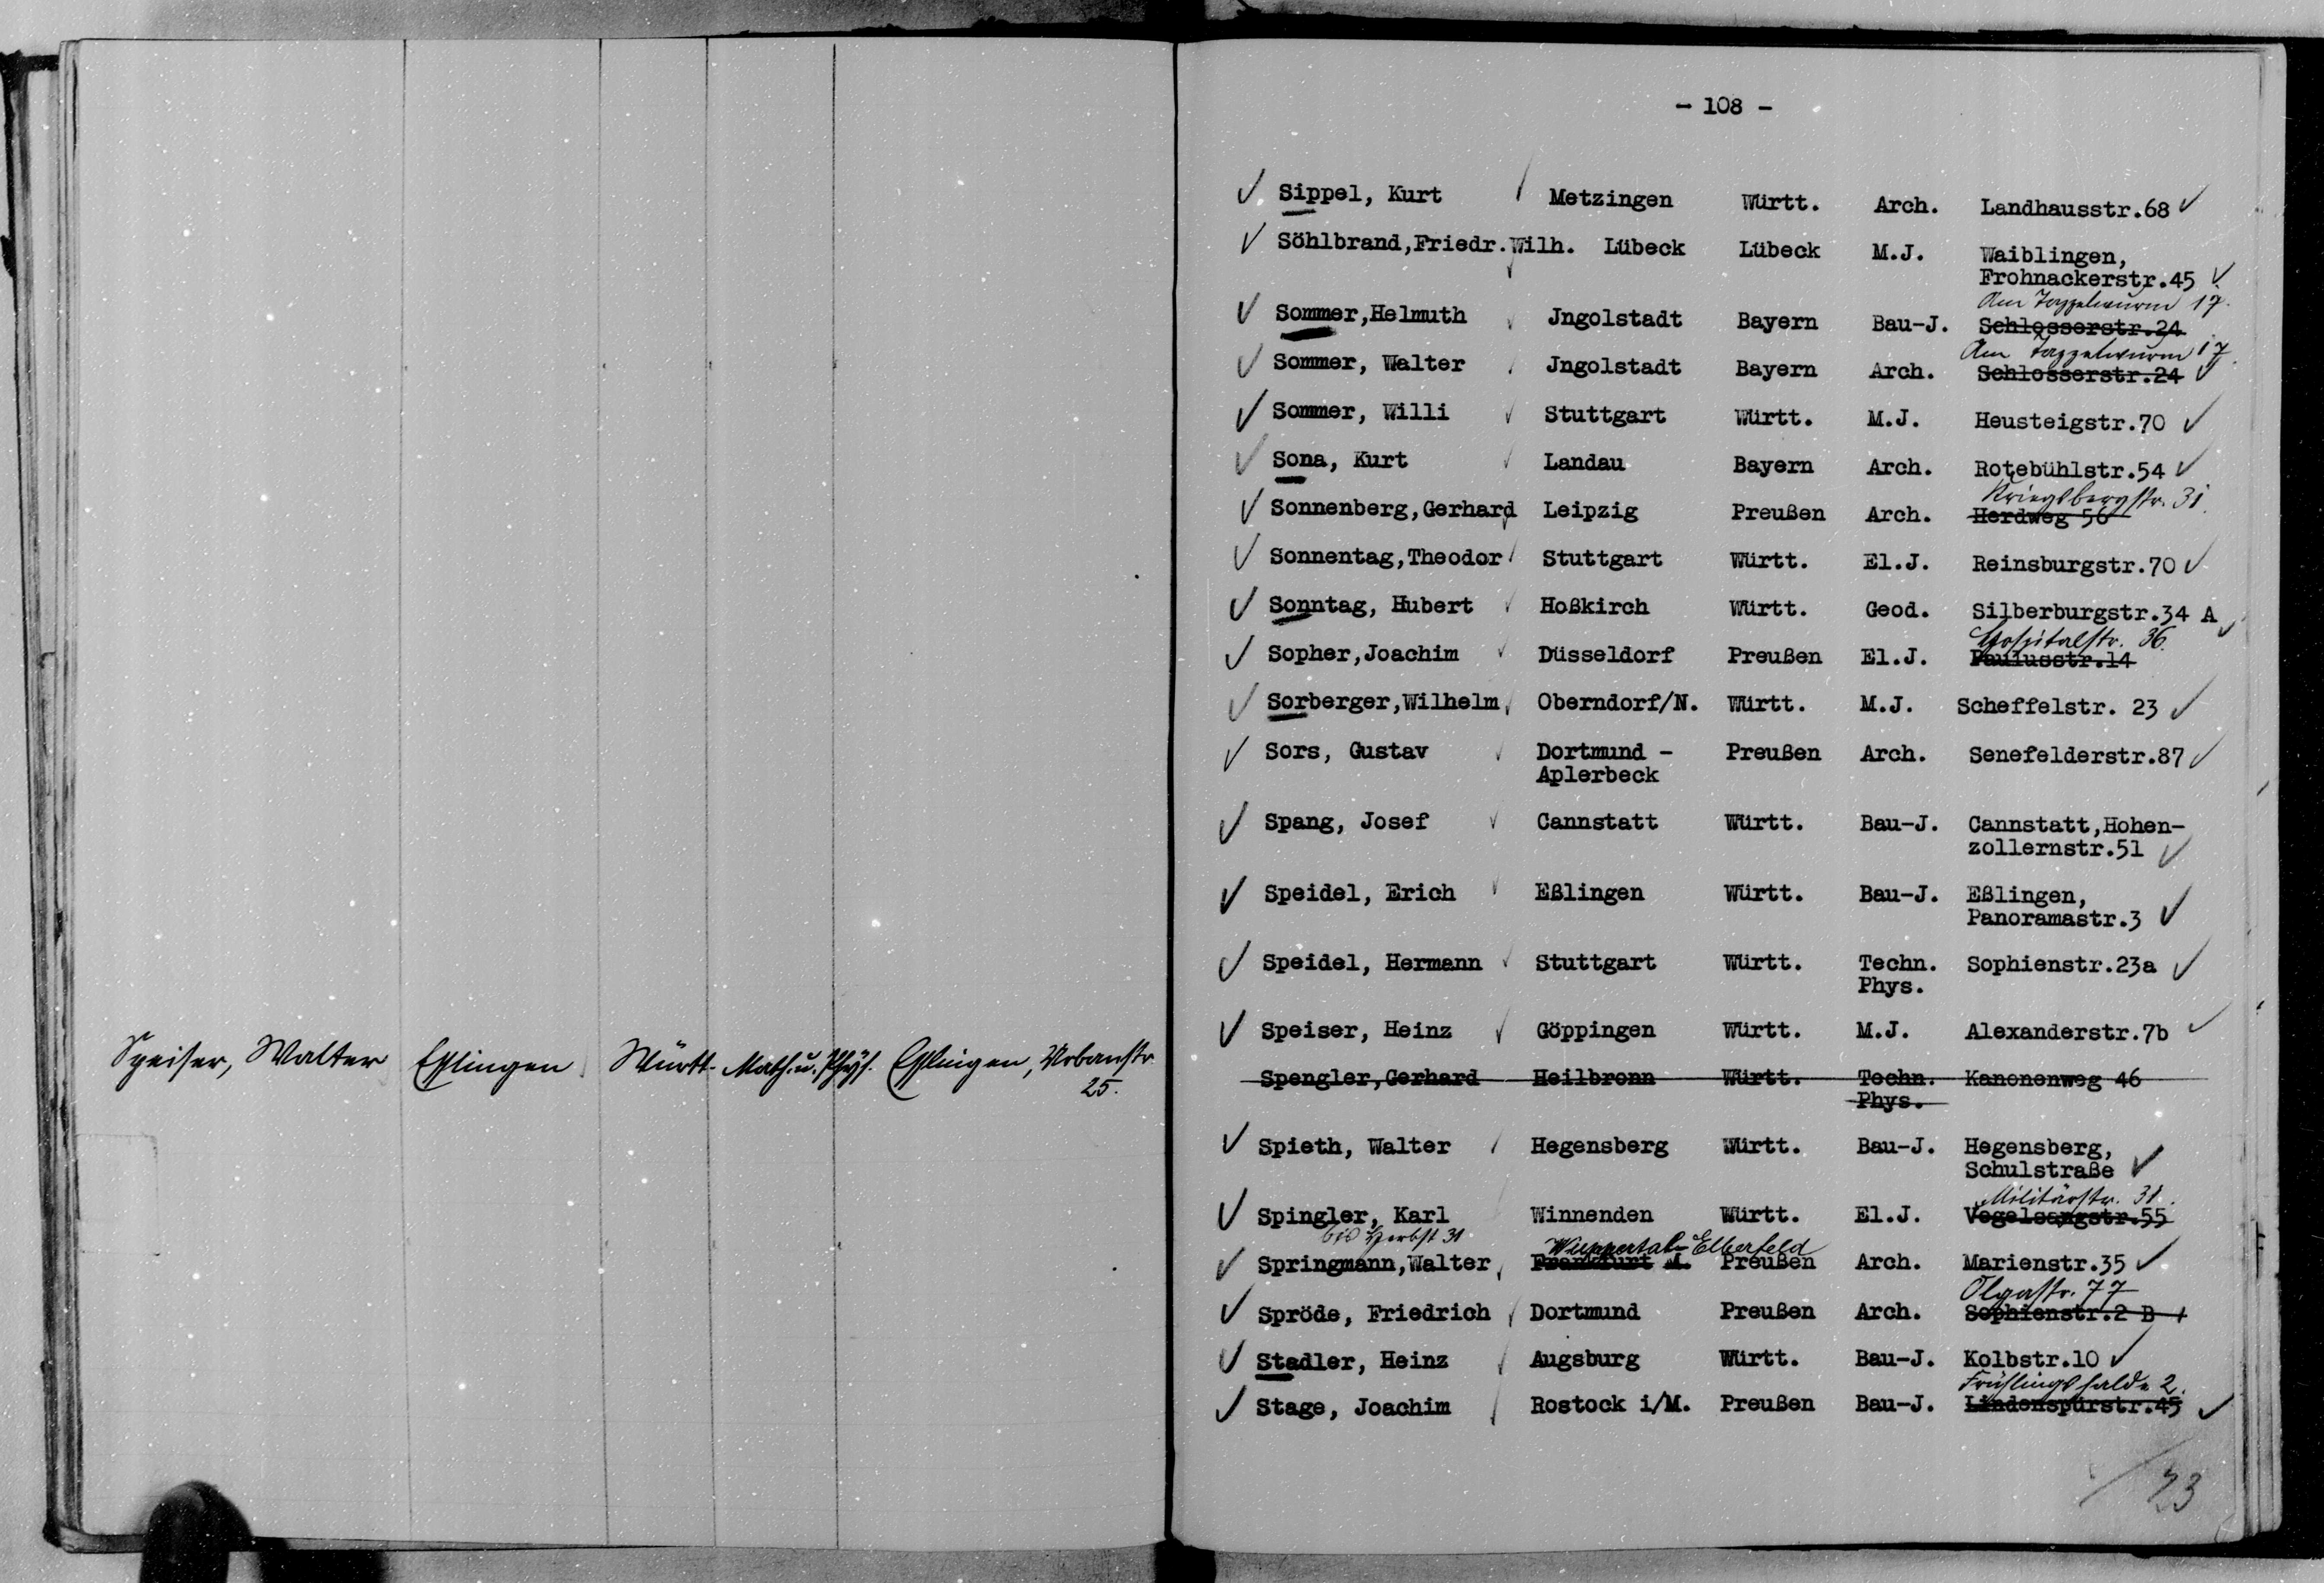 Speiser, Walter Eßlingen Württ. Math. u. Phys. Eßlingen, Urbanstr.
25.
- 108 -
Sippel, Kurt Metzingen Württ. Arch. Landhausstr.68
Söhlbrand,Friedr.Wilh. Lübeck Lübeck M.J. Waiblingen,
Frohnackerstr.45
Am Tazzelwurm 17.
Sommer,Helmuth Jngolstadt Bayern Bau-J. Schlosserstr.24
Am Tazzelwurm 17.
Sommer, Walter Jngolstadt Bayern Arch. Schlosserstr.24
Sommer, Willi Stuttgart Württ. M.J. Heusteigstr.70
Sona, Kurt Landau Bayern Arch. Rotebühlstr.54
Kriegsbergstr. 31.
Sonnenberg,Gerhard Leipzig Preußen Arch. Herdweg 56
Sonnentag,Theodor Stuttgart Württ. El.J. Reinsburgstr.70
Sonntag, Hubert Hoßkirch Württ. Geod. Silberburgstr.34 A
Hospitalstr. 36.
Sopher,Joachim Düsseldorf Preußen El.J. Paulusstr.14
Sorberger,Wilhelm Oberndorf/N. Württ. M.J. Scheffelstr. 23
Sors, Gustav Dortmund - Preußen Arch. Senefelderstr.87
Aplerbeck
Spang, Josef Cannstatt Württ. Bau-J. Cannstatt,Hohen-
zollernstr.51
Speidel, Erich Eßlingen Württ. Bau-J. Eßlingen,
Panoramastr.3
Speidel, Hermann Stuttgart Württ. Techn. Sophienstr.23a
Phys.
Speiser, Heinz Göppingen Württ. M.J. Alexanderstr.7b
Spengler,Gerhard Heilbronn Württ. Techn. Kanonenweg 46
Phys.
Spieth, Walter Hegensberg Württ. Bau-J. Hegensberg,
Schulstraße
Militärstr. 31.
Spingler, Karl Winnenden Württ. El.J. Vogelsangstr.55
bis Herbst 31 Wuppertal-Elberfeld
Springmann,Walter Frankfurt M. Preußen Arch. Marienstr.35
Olgastr. 77
Spröde, Friedrich Dortmund Preußen Arch. Sophienstr.2 B
Stadler, Heinz Augsburg Württ. Bau-J. Kolbstr.10
Frühlingshalde 2.
Stage, Joachim Rostock i/M. Preußen Bau-J. Lindenspürstr.45
23